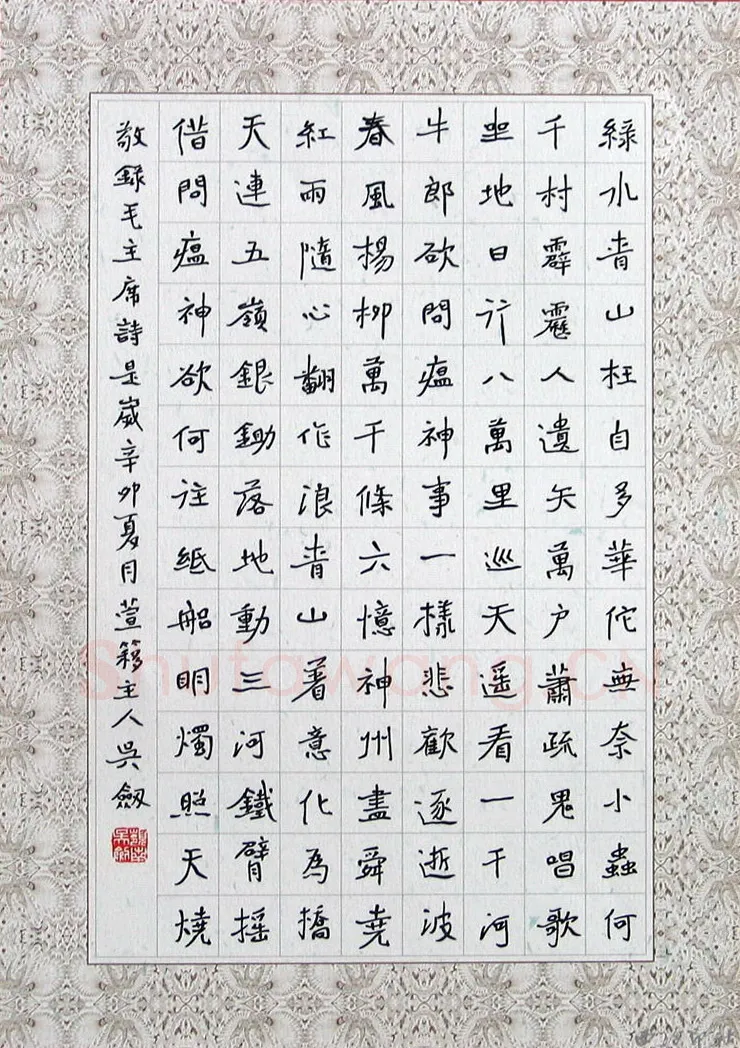 綠水青山枉自多華佗無奈小蟲何
千村霹靂人遺矢萬户蕭疏鬼唱歌
坐地日行八萬里巡天遥看一千河
牛郎欲問瘟神事一樣悲歡逐逝波
春風楊柳萬千條六憶神州盡舜堯
紅雨隨心翻作浪青山着意化為橋
天連五嶺銀鋤落地動三河鐵臂摇
借問瘟神欲何往紙船明燭照天燒
敬録毛主席詩是歲辛卯夏月萱簃主人吳劍
Shufawang.CN